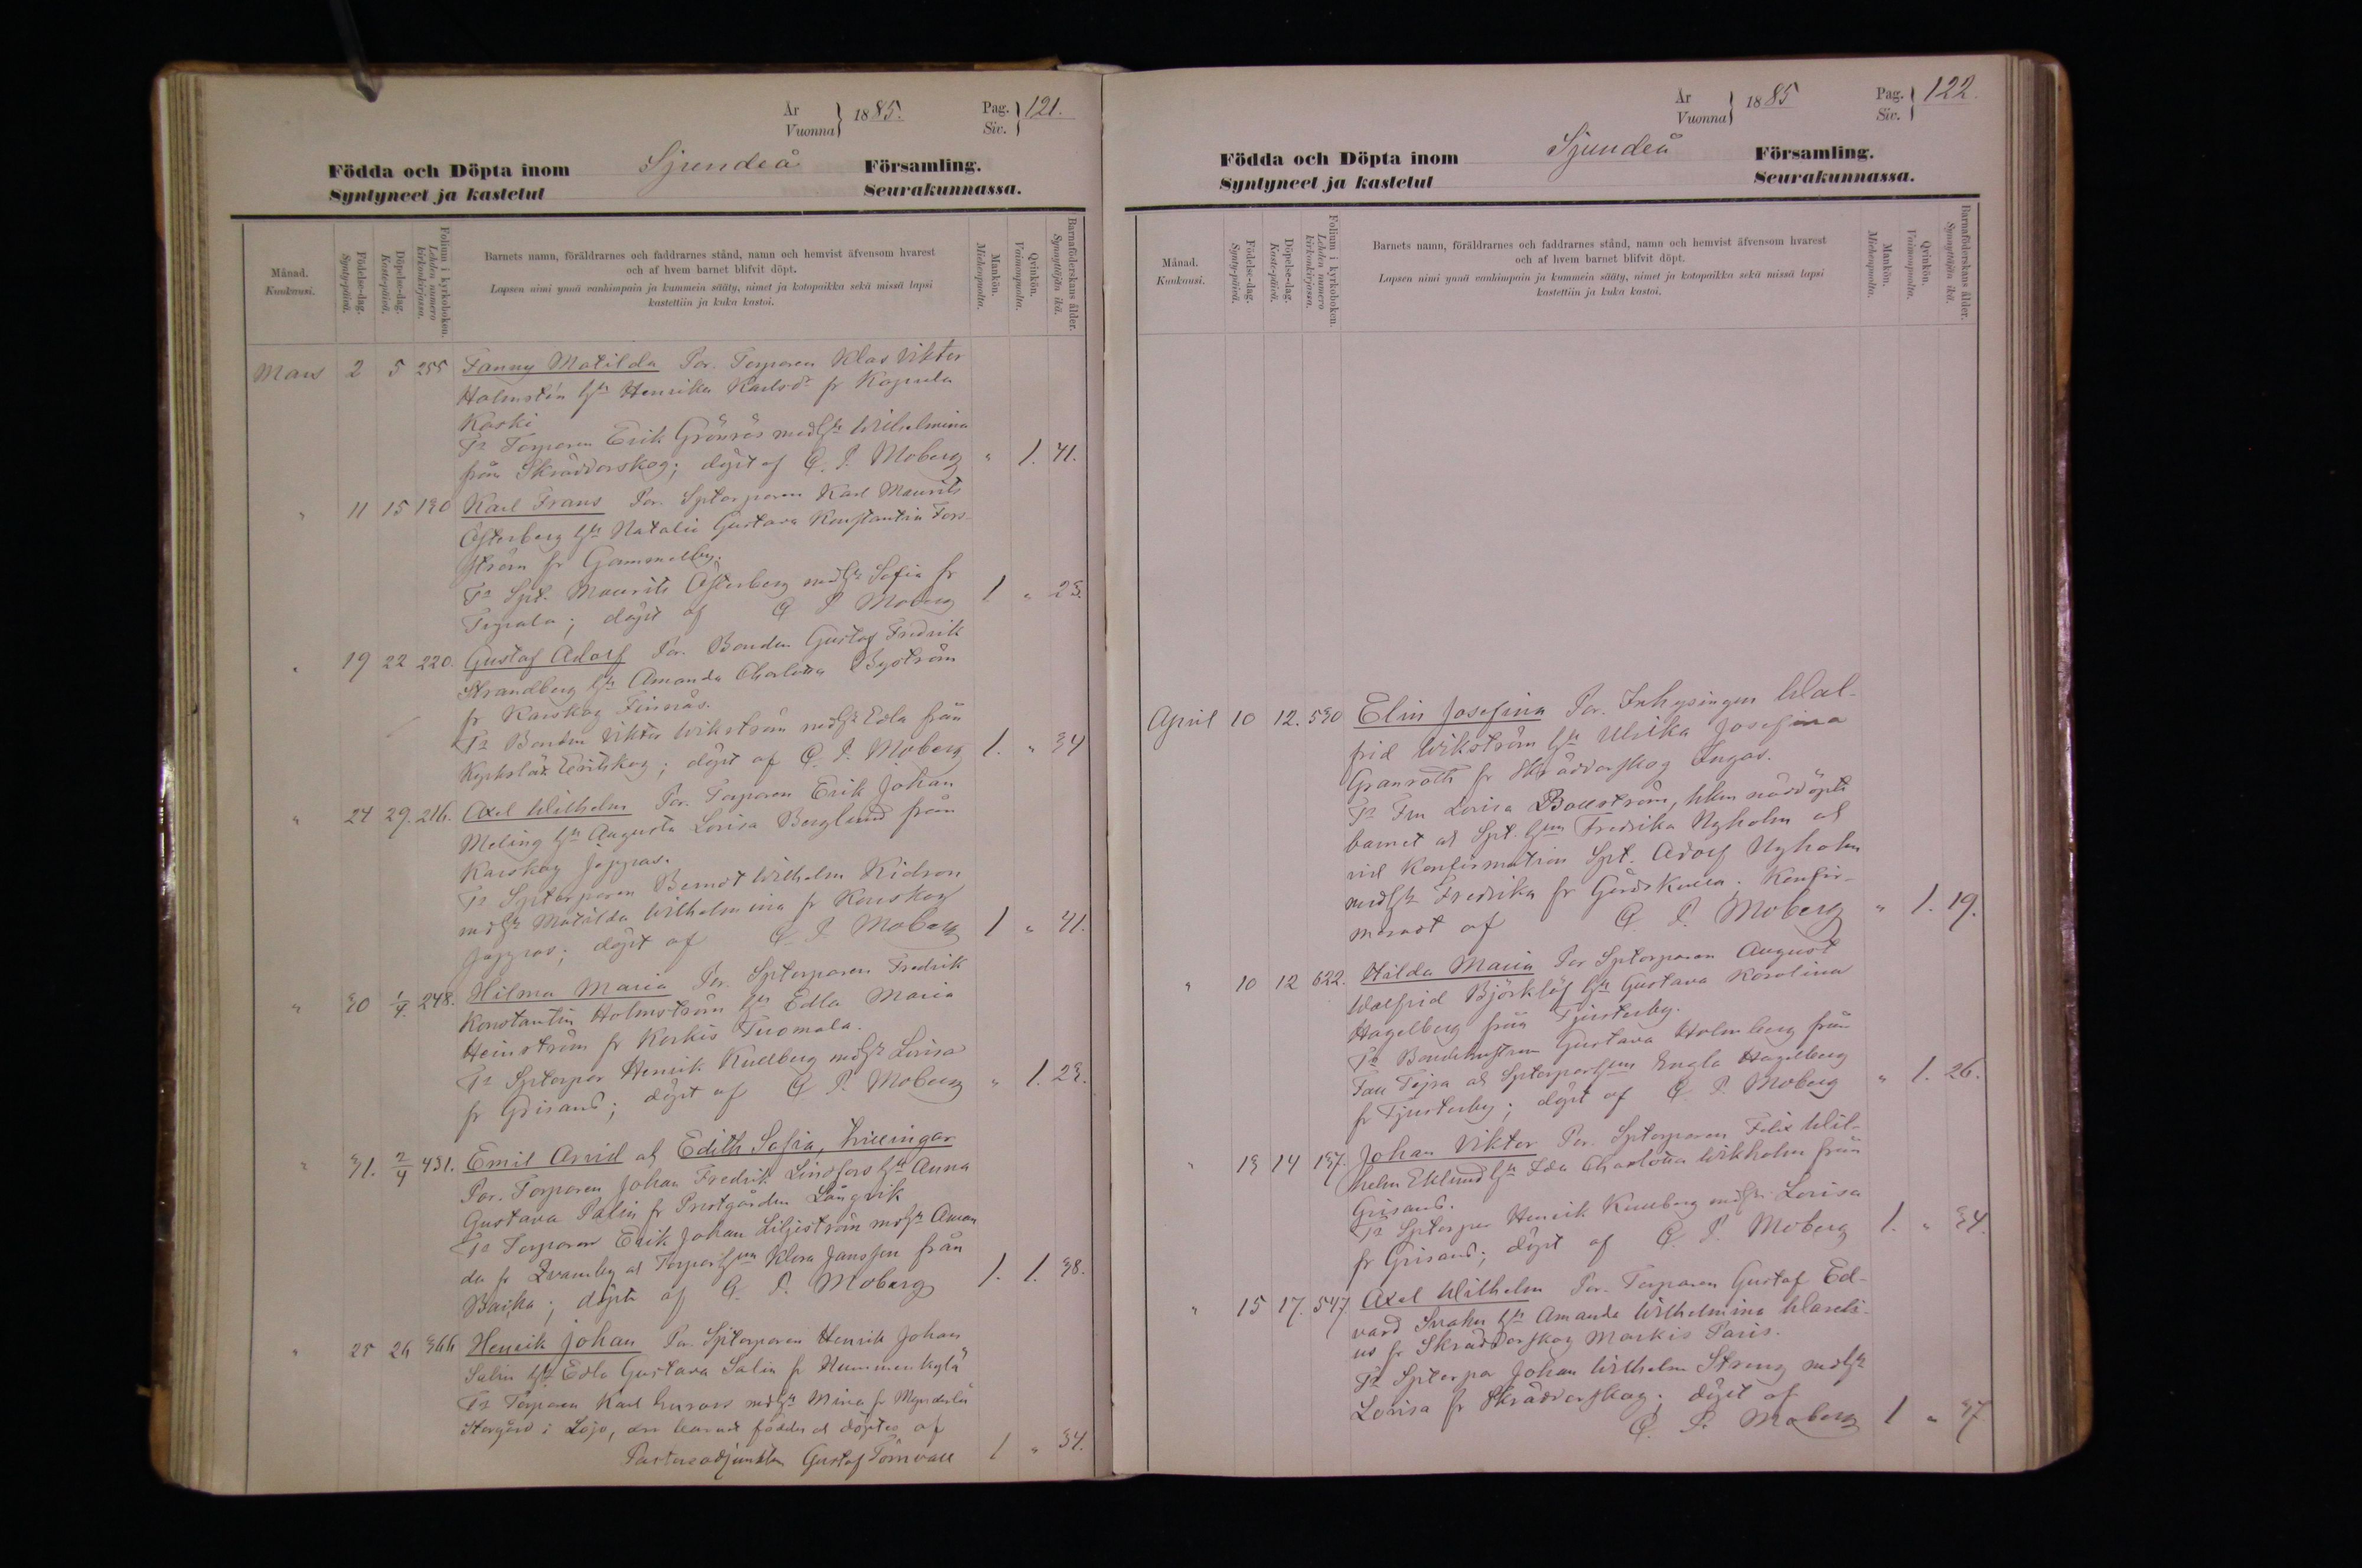 År
Vuonna
1885.
Pag.
Siv.
121.
Födda och Döpta inom Sjundeå Församling.
Syntyneet ja kastetut Seurakunnassa.
Månad.
Kuukausi.
Födelse-dag.
Synty-päivä.
Döpelse-dag.
Kaste-päivä.
Folium i kyrkoboken.
Lehden numero kirkonkirjassa.
Barnets namn, föräldrarnes och faddrarnes stånd, namn och hemvist äfvensom hvarest
och af hvem barnet blifvit döpt.
Lapsen nimi ynnä vanhimpain ja kummein sääty, nimet ja kotopaikka sekä missä lapsi
kastettiin ja kuka kastoi.
Mankön.
Miehenpuolta.
Qvinkön.
Vaimonpuolta.
Barnaföderskans ålder.
Synnyttäjän ikä.
Mars 2 5 255 Fanny Matilda För. Torparen Klas Viktor
Holmstén hu Henrika Karlsd. fr Kopula
Kaski
Fr Torparen Erik Grönros med hu Wilhelmina
från Skräddarskog; döpt af G. P. Moberg " 1. 41.
" 11 15 130 Karl Frans För. Sptorparen Karl Maurits
Österberg hu Natalia Gustava Konstantia Fors-
ström fr Gammelby.
Fr Spt. Maurits Österberg med hu Sofia fr
Tupala; döpt af G P Moberg 1 " 23.
" 19 22 220. Gustaf Adolf För. Bonden Gustaf Fredrik
Strandberg hu Amanda Charlotta Byström
fr Karskog Finnäs.
Fr Bonden Viktor Wikström med hu Edla från
Kyrkslätt Evitskog; döpt af G. P. Moberg 1. " 34
" 24 29. 216. Axel Wilhelm För. Torparen Erik Johan
Meling hu Augusta Lovisa Berglund från
Karskog Joppas.
Fr Sptorparen Berndt Wilhelm Kidron
med hu Matilda Wilhelmina fr Karskog
Joppas; döpt af G. P. Moberg 1 " 41.
" 30 1/4. 248. Hilma Maria För. Sptorparen Fredrik
Konstantin Holmström hu Edla Maria
Heinström fr Korkis Tuomala.
Fr Sptorpar Henrik Kullberg med hu Lovisa
fr Grisans; döpt af G P. Moberg " 1. 23.
" 31. 2/4 431. Emil Arvid och Edith Sofia, tvillingar
För. Torparen Johan Fredrik Lindfors hu Anna
Gustava Palin fr Prestgården Långvik
Fr Torparen Erik Johan Liljeström med hu Aman
da fr Qvarnby och Torparhun Klara Jansson från
Backa; döpta af G. P. Moberg 1. 1. 38.
" 25 26 366 Henrik Johan För. Sptorparen Henrik Johan
Salin hu Edla Gustava Salin fr Hummerkylä
Fr Torparen Karl med hu Mina fr
Storgård i Lojo, der barnet föddes och döptes af
Pastorsadjunkten Gustaf Törnvall 1 " 34.
År
Vuonna
1885
Pag.
Siv.
122.
Födda och Döpta inom Sjundeå Församling.
Syntyneet ja kastetut Seurakunnassa.
Månad.
Kuukausi.
Födelse-dag.
Synty-päivä.
Döpelse-dag.
Kaste-päivä.
Folium i kyrkoboken.
Lehden numero kirkonkirjassa.
Barnets namn, föräldrarnes och faddrarnes stånd, namn och hemvist äfvensom hvarest
och af hvem barnet blifvit döpt.
Lapsen nimi ynnä vanhimpain ja kummein sääty, nimet ja kotopaikka sekä missä lapsi
kastettiin ja kuka kastoi.
Mankön.
Miehenpuolta.
Qvinkön.
Vaimonpuolta.
Barnaföderskans ålder.
Synnyttäjän ikä.
April 10 12. 530 Elin Josefina För. Inhysingen Wal-
frid Wikström hu Ulrika Josefina
Granroth fr Skräddarskog Ingas.
Fr Fru Lovisa Bollström, som nöddöpte
barnet och Spt. hun Fredrika Nyholm och
vid konfirmation Spt. Adolf Nyholm
med hu Fredrika fr Gårdskulla. Konfir-
meradt af G. P. Moberg " 1. 19.
" 10 12 622. Hilda Maria För Sptorparen August
Walfrid Björklöf hu Gustava Karolina
Hagelberg från Tjusterby.
Fr Bondehustrun Gustava Holmberg från
Tojra och Sptorparhun Engla Hagelberg
fr Tjusterby; döpt af G. P. Moberg " 1. 26.
" 13 14 137. Johan Viktor För. Sptorparen Felix Wil-
helm Eklund hu Ida Charlotta Wikholm från
Grisans.
Fr Sptorpar Henrik Kullberg med hu Lovisa
fr Grisans; döpt af G. P. Moberg 1. " 34.
" 15 17. 547. Axel Wilhelm För. Torparen Gustaf Ed-
vard Svahn hu Amanda Wilhelmina Wareli-
us fr Skräddarskog Markis Paris.
Fr Sptorpar Johan Wilhelm Streng med hu
Lovisa fr Skräddarskog; döpt af
G. P. Moberg 1 " 37